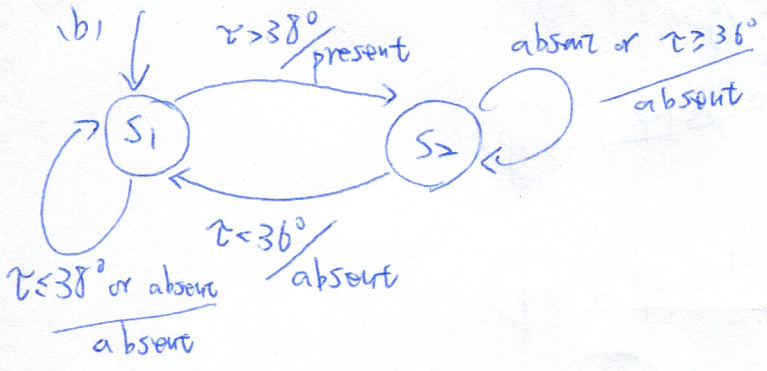 (b)
τ>38°/present
absent or τ≥36°
absent
S1
S2
τ<36°/absent
τ≤38° or absent
absent